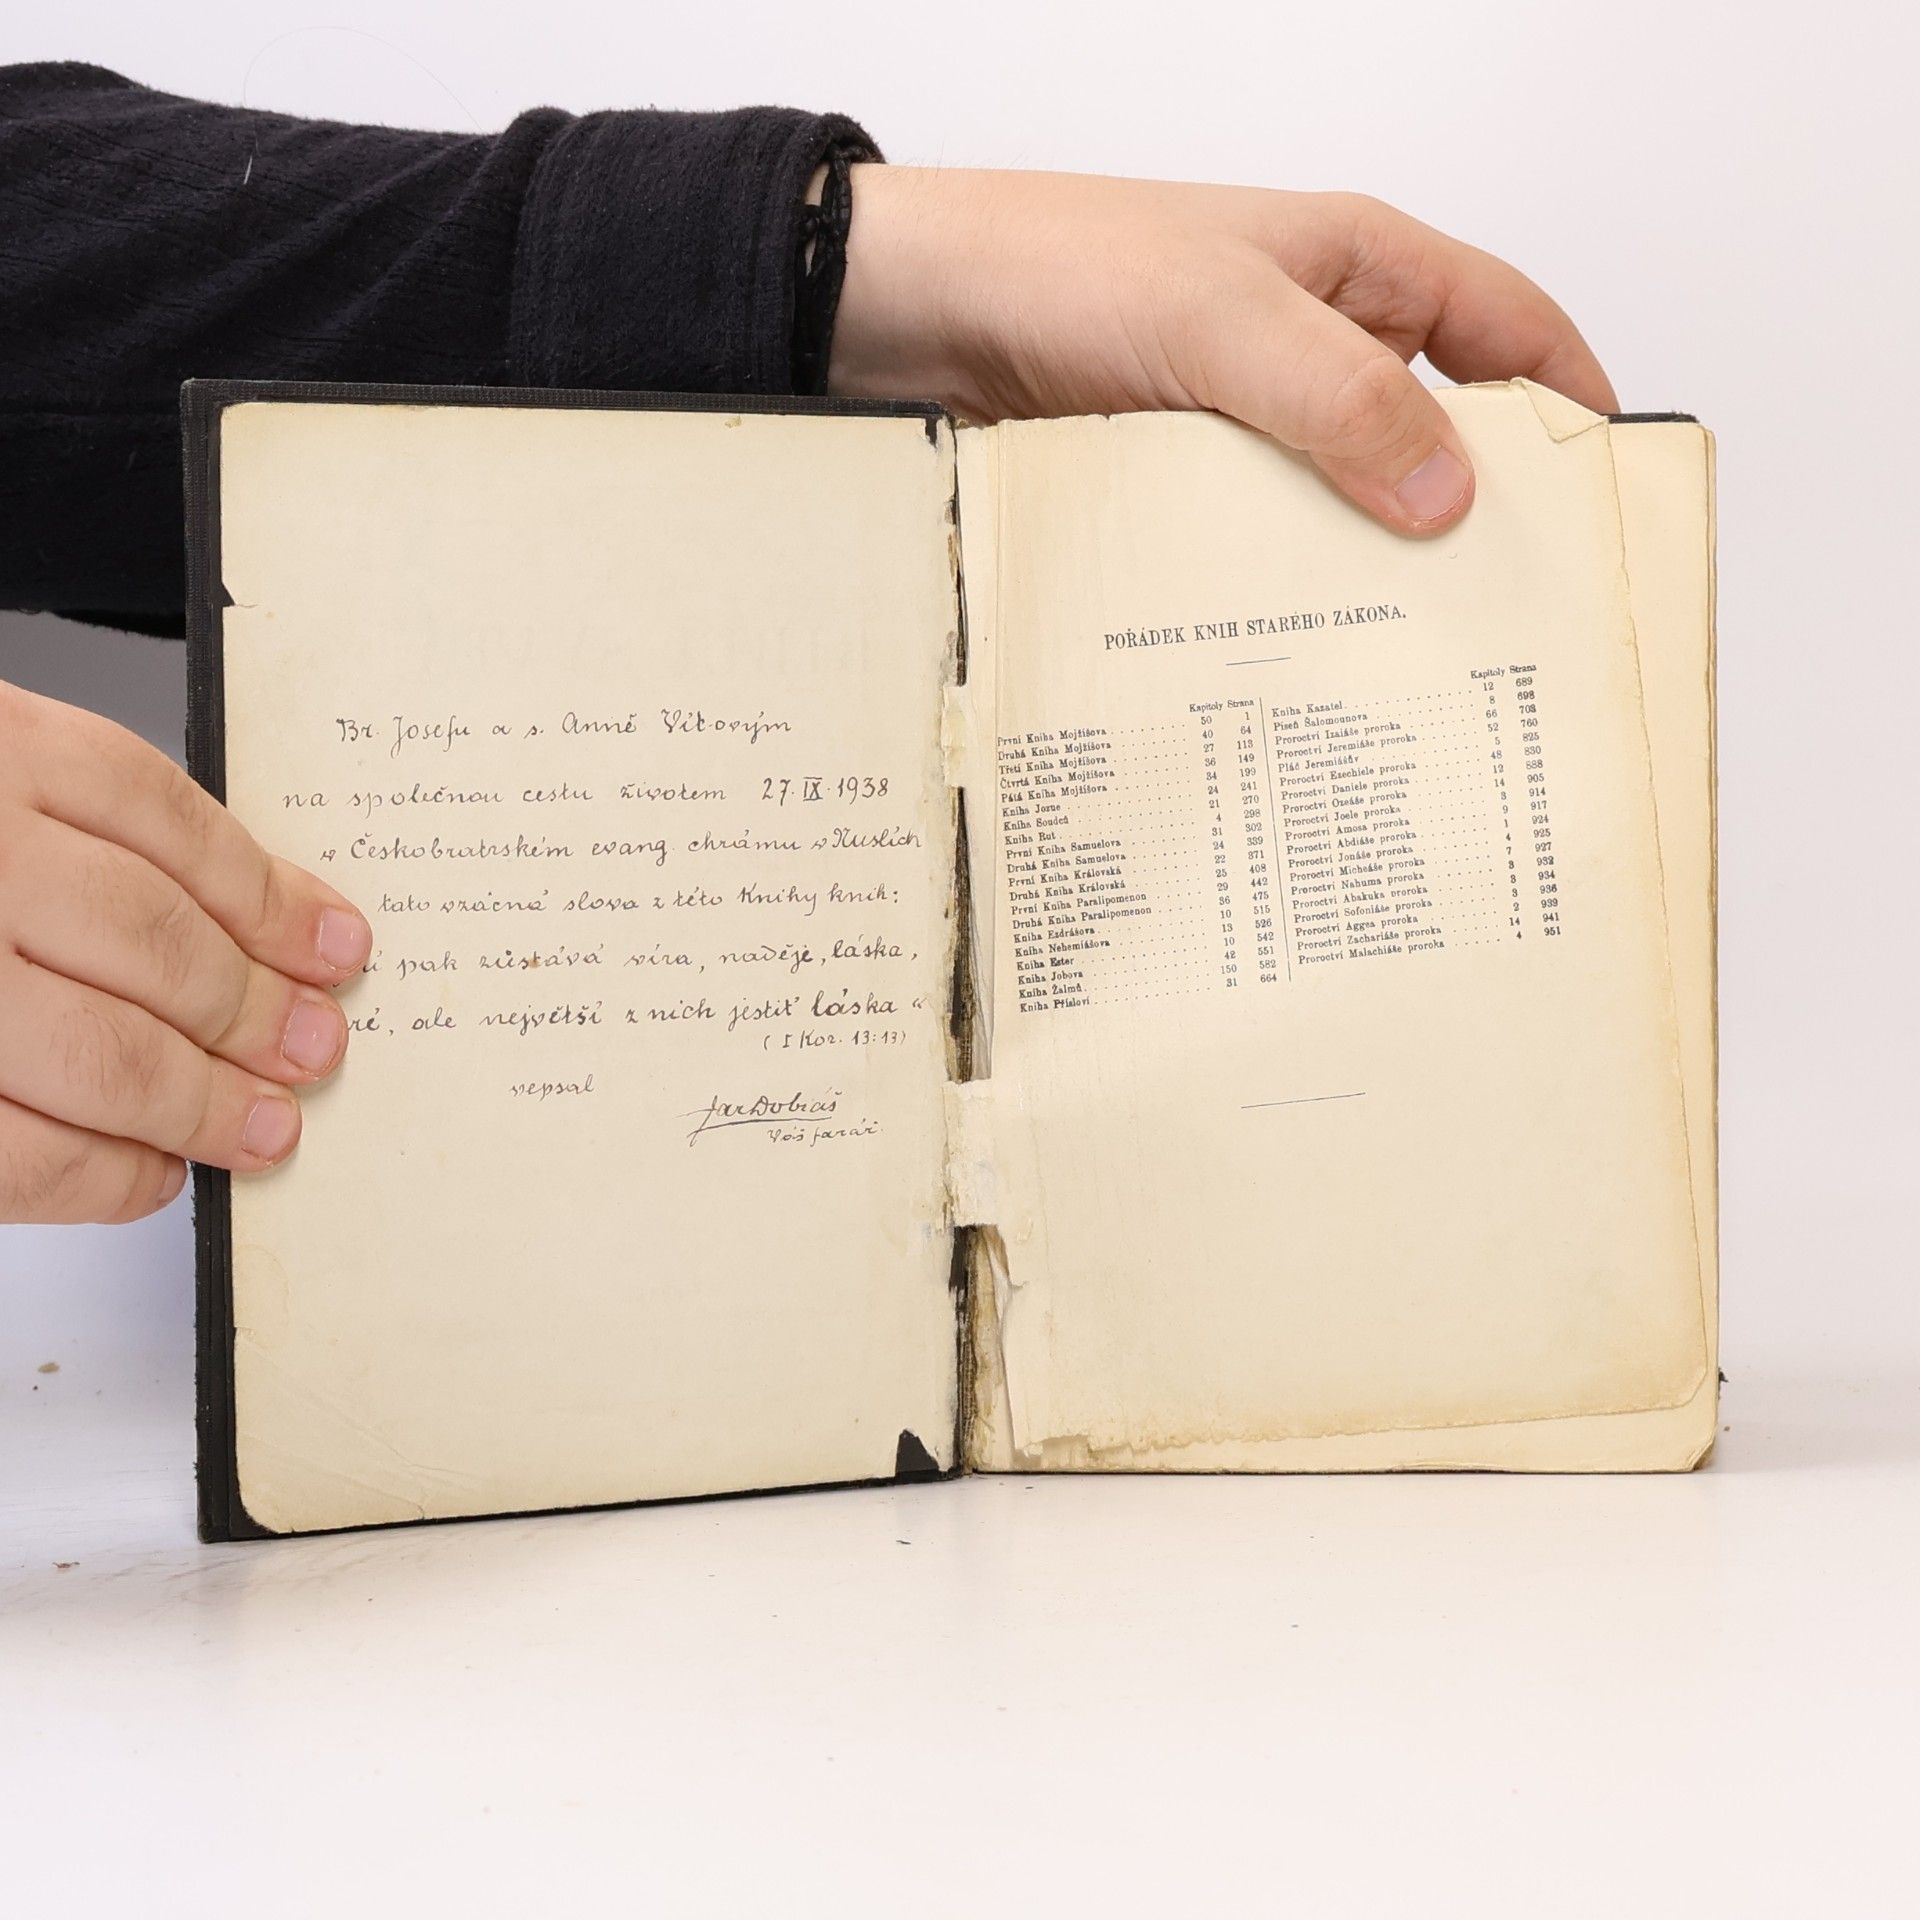 Br. Josefu a s. Anně Vítovým
na společnou cestu životem 27. IX. 1938
v Českobratrském evang. chrámu v Nuslích
tato vzácná slova z této Knihy knih:
pak zůstává víra, naděje, láska,
ale největší z nich jestiť láska "
( I Kor. 13:13)
vepsal
JarDobiáš
Váš farář.
POŘÁDEK KNIH STARÉHO ZÁKONA.
Kapitoly Strana
První Kniha Mojžíšova 50 1
Druhá Kniha Mojžíšova 40 64
Třetí Kniha Mojžíšova 27 113
Čtvrtá Kniha Mojžíšova 36 149
Pátá Kniha Mojžíšova 34 199
Kniha Jozue 24 241
Kniha Soudců 21 270
Kniha Rut 4 298
První Kniha Samuelova 31 302
Druhá Kniha Samuelova 24 339
První Kniha Královská 22 371
Druhá Kniha Královská 25 408
První Kniha Paralipomenon 29 442
Druhá Kniha Paralipomenon 36 475
Kniha Ezdrášova 10 515
Kniha Nehemiášova 13 526
Kniha Ester 10 542
Kniha Jobova 42 551
Kniha Žalmů 150 582
Kniha Přísloví 31 664
Kapitoly Strana
Kniha Kazatel 12 689
Píseň Šalomounova 8 698
Proroctví Izaiáše proroka 66 703
Proroctví Jeremiáše proroka 52 760
Pláč Jeremiášův 5 825
Proroctví Ezechiele proroka 48 830
Proroctví Daniele proroka 12 888
Proroctví Ozeáše proroka 14 905
Proroctví Joele proroka 3 914
Proroctví Amosa proroka 9 917
Proroctví Abdiáše proroka 1 924
Proroctví Jonáše proroka 4 925
Proroctví Micheáše proroka 7 927
Proroctví Nahuma proroka 3 932
Proroctví Abakuka proroka 3 934
Proroctví Sofoniáše proroka 3 936
Proroctví Aggea proroka 2 939
Proroctví Zachariáše proroka 14 941
Proroctví Malachiáše proroka 4 951